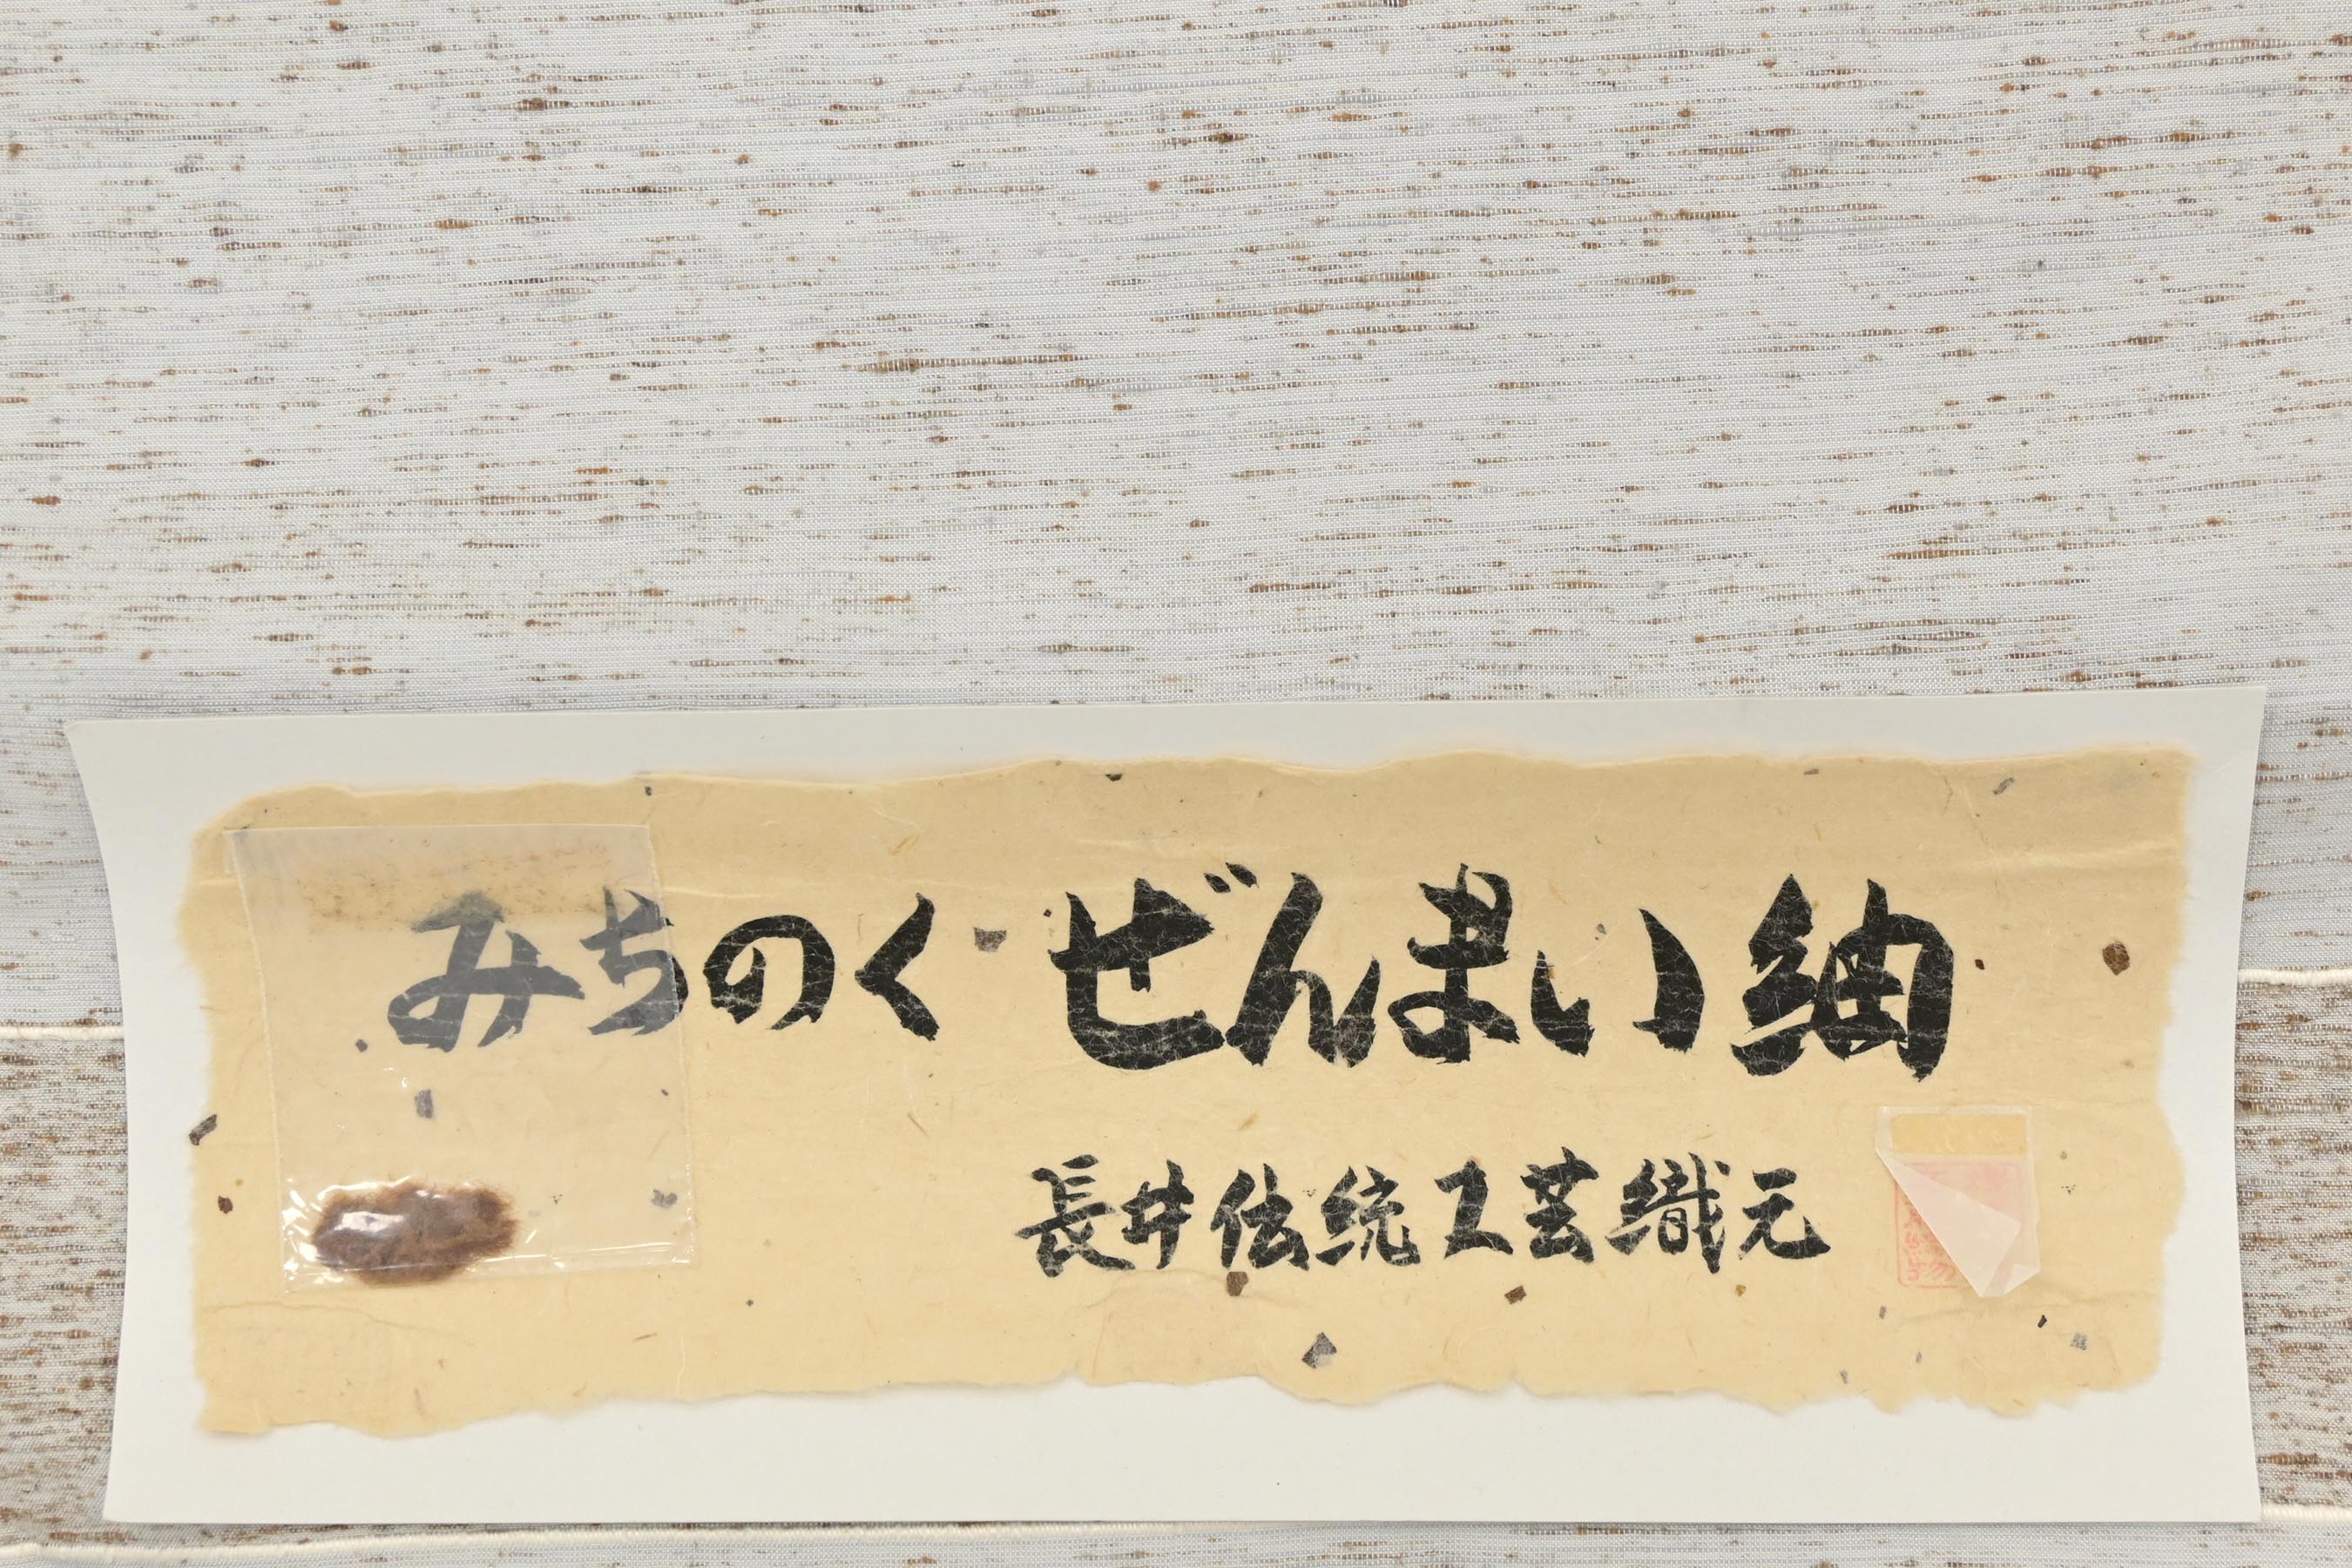 みちのく ぜんまい紬
長井伝統工芸織元